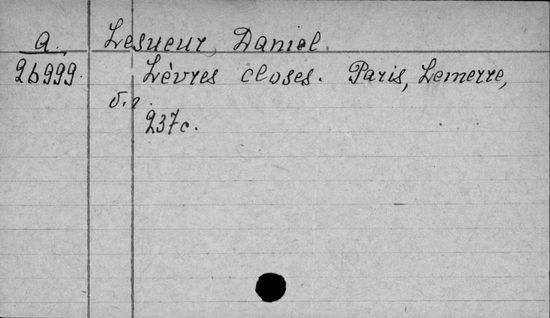 a. Lesueur, Daniel.
26999. Lèvres closes. Paris, Lemerre,
б.г.
237 с.